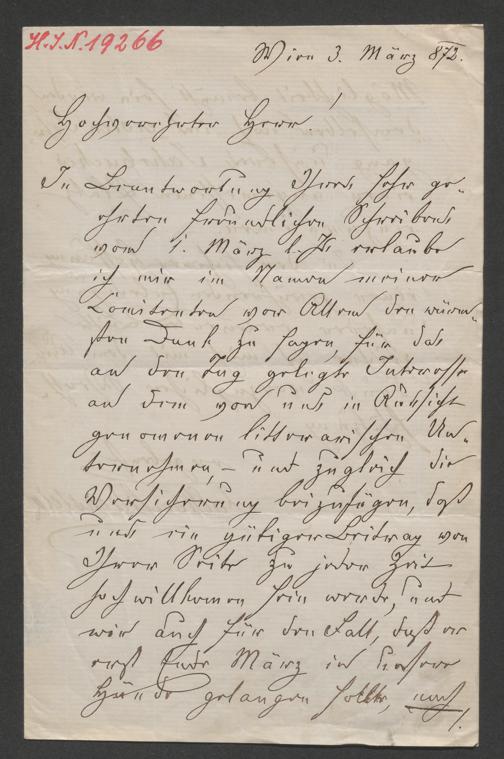 H.I.N. 19266
Wien 3. März 872.
Hochverehrter Herr!
In Beantwortung Ihres sehr ge-
ehrten freundlichen Schreibens
vom 1. März l. Js erlaube
ich mir im Namen meiner
Comitenten vor Allem den wärm-
sten Dank zu sagen, für das
an den Tag gelegte Interesse
an dem von uns in Rücksicht
genomenen litterarischen Un-
ternehmen, – und zugleich die
Versicherung beizufügen, daß
uns ein gütiger Beitrag von
Ihrer Seite zu jeder Zeit
hochwillkomen sein werde, und
wir auch für den Fall, daß er
erst Ende März in unsere
Hände gelangen sollte, noch
/.